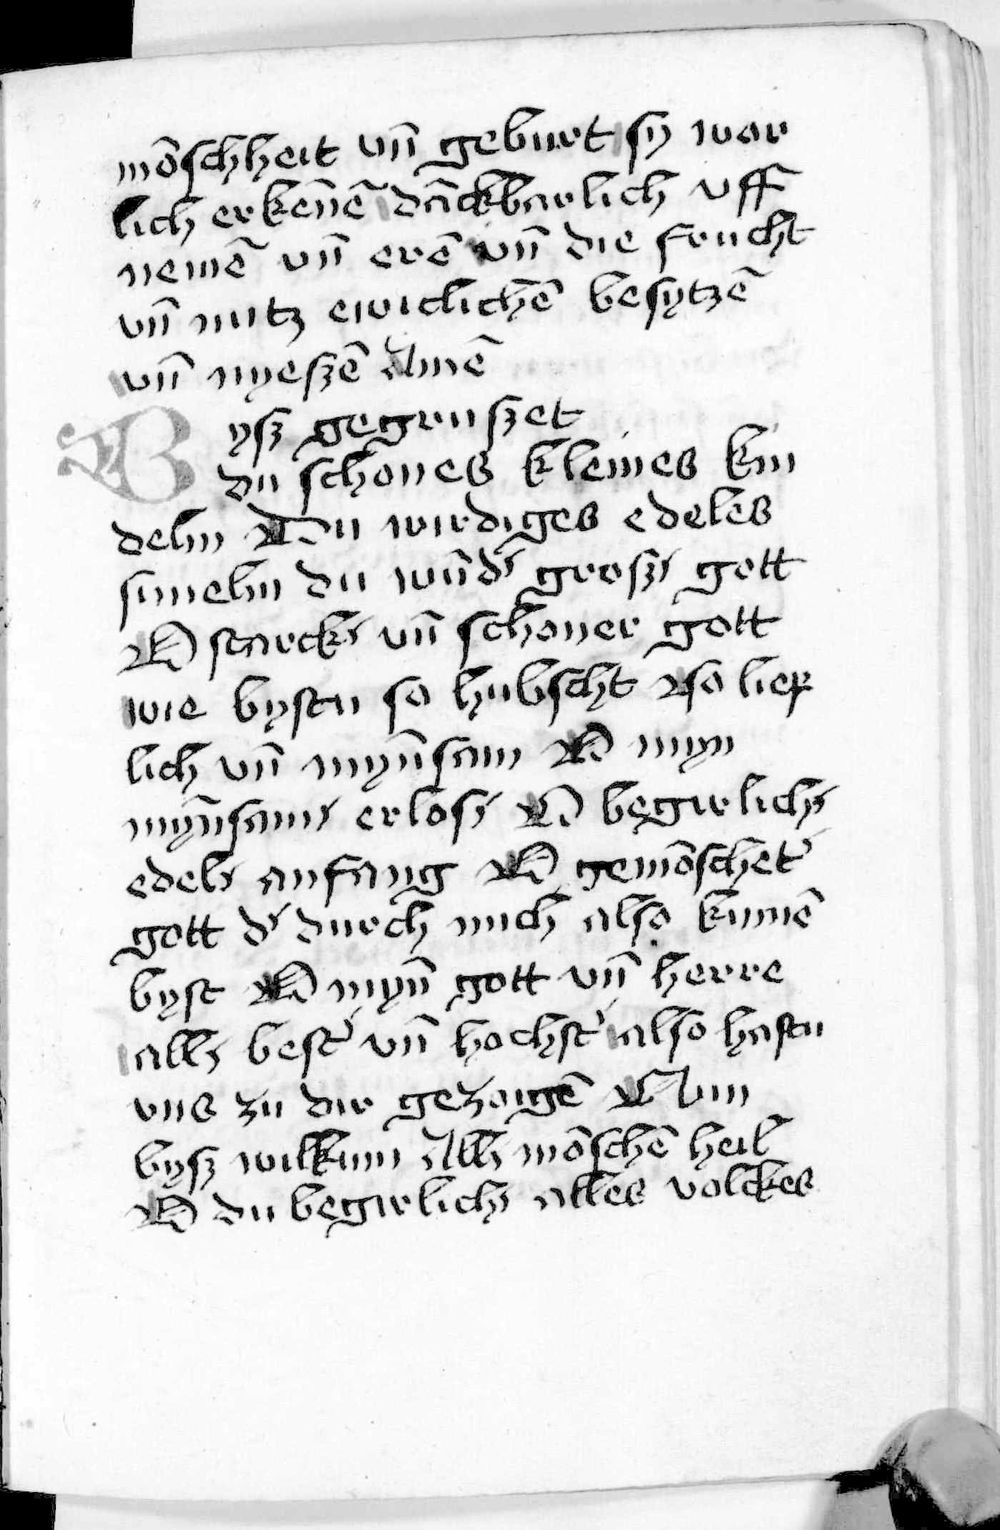 mōschheit vn̄ geburt sy war
lich erkēnē dāckbarlich vff
nemē vn̄ erē vn̄ die frucht
vn̄ nutz ewiclichē besytzē
vn̄ nyeszē Amē
Bysz gegruszet
du schones kleines kin
delin Du wirdiges edeles
sunelin du wūd' grosz' gott
O starck' vn̄ schoner gott
wie bystu so hubscht so liep
lich vn̄ myn̄sam O myn
myn̄sam' erlos' O begirlich'
edel' anfang O gemōschet'
gott d' durch mich also kumē
byst O myn̄ gott vn̄ herre
all' best' vn̄ hochst' also hastu
vns zu dir gezoigē Nun
bysz wilkum All' mōschē heil
O du begirlich' alles volckes